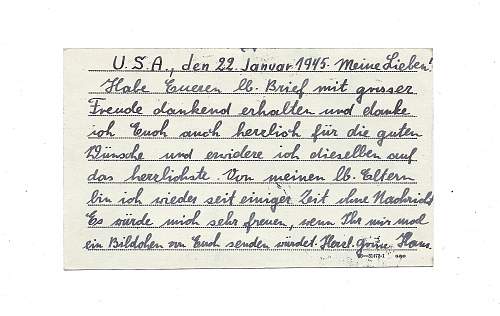 U.S.A., den 22. Januar 1945. Meine Lieben!
Habe Eueren lb. Brief mit grosser
Freude dankend erhalten und danke
ich Euch auch herzlich für die guten
Wünsche und erwidere ich dieselben auf
das herzlichste. Von meinen lb. Eltern
bin ich wieder seit einiger Zeit ohne Nachricht
Es würde mich sehr freuen, wenn Ihr mir mal
ein Bildchen von Euch senden würdet. Herzl. Grüsse Hans
16—31473-1 GPO